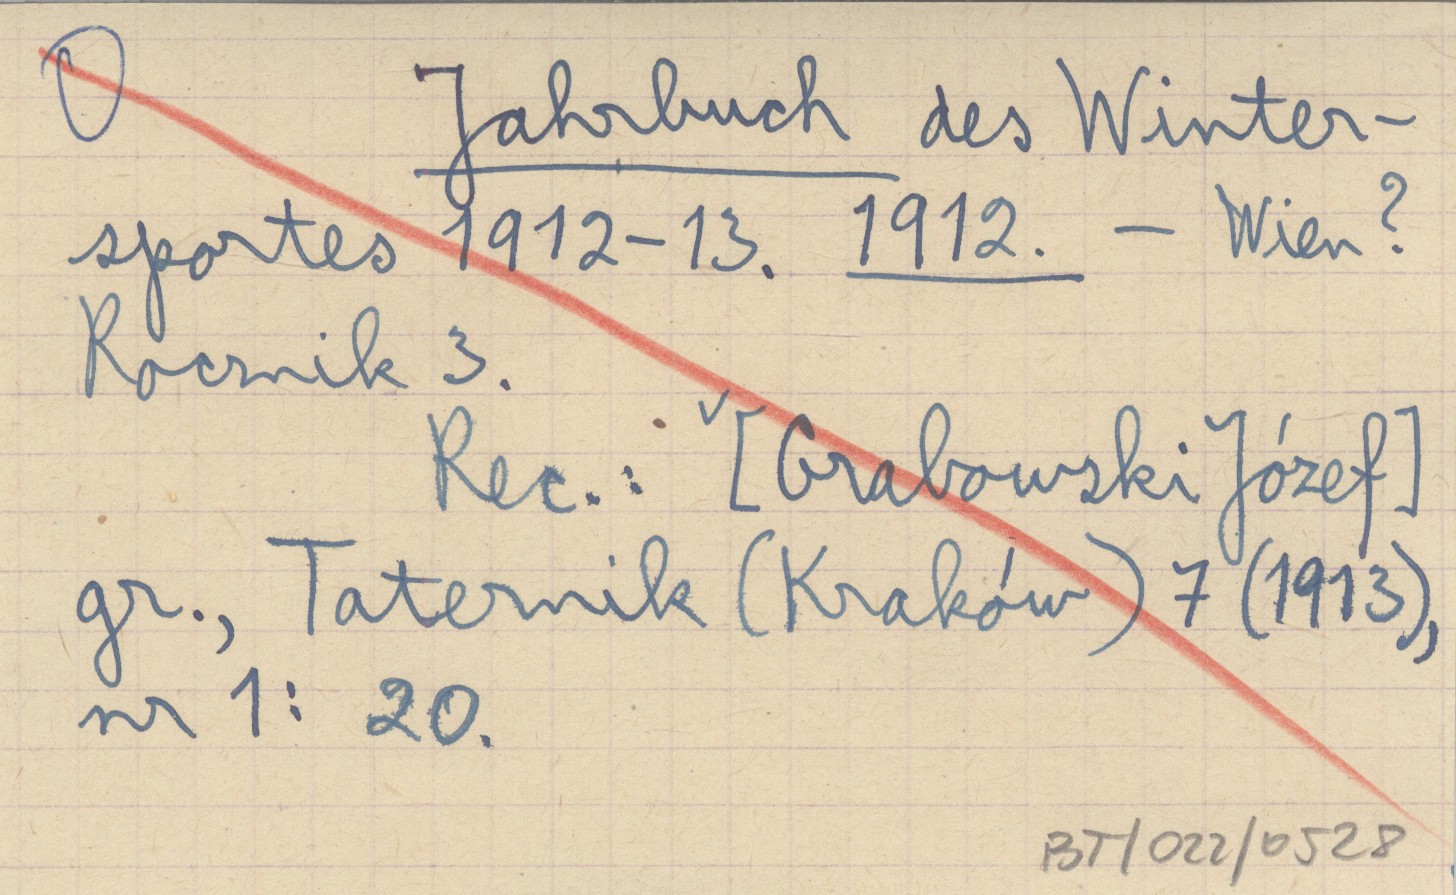 Jahrbuch des Winter-
sportes 1912-13. 1912. – Wien?
Rocznik 3.
Rec.: ᵛ[Grabowski Józef]
gr., Taternik (Kraków) 7 (1913),
nr 1: 20.
BT/022/0528